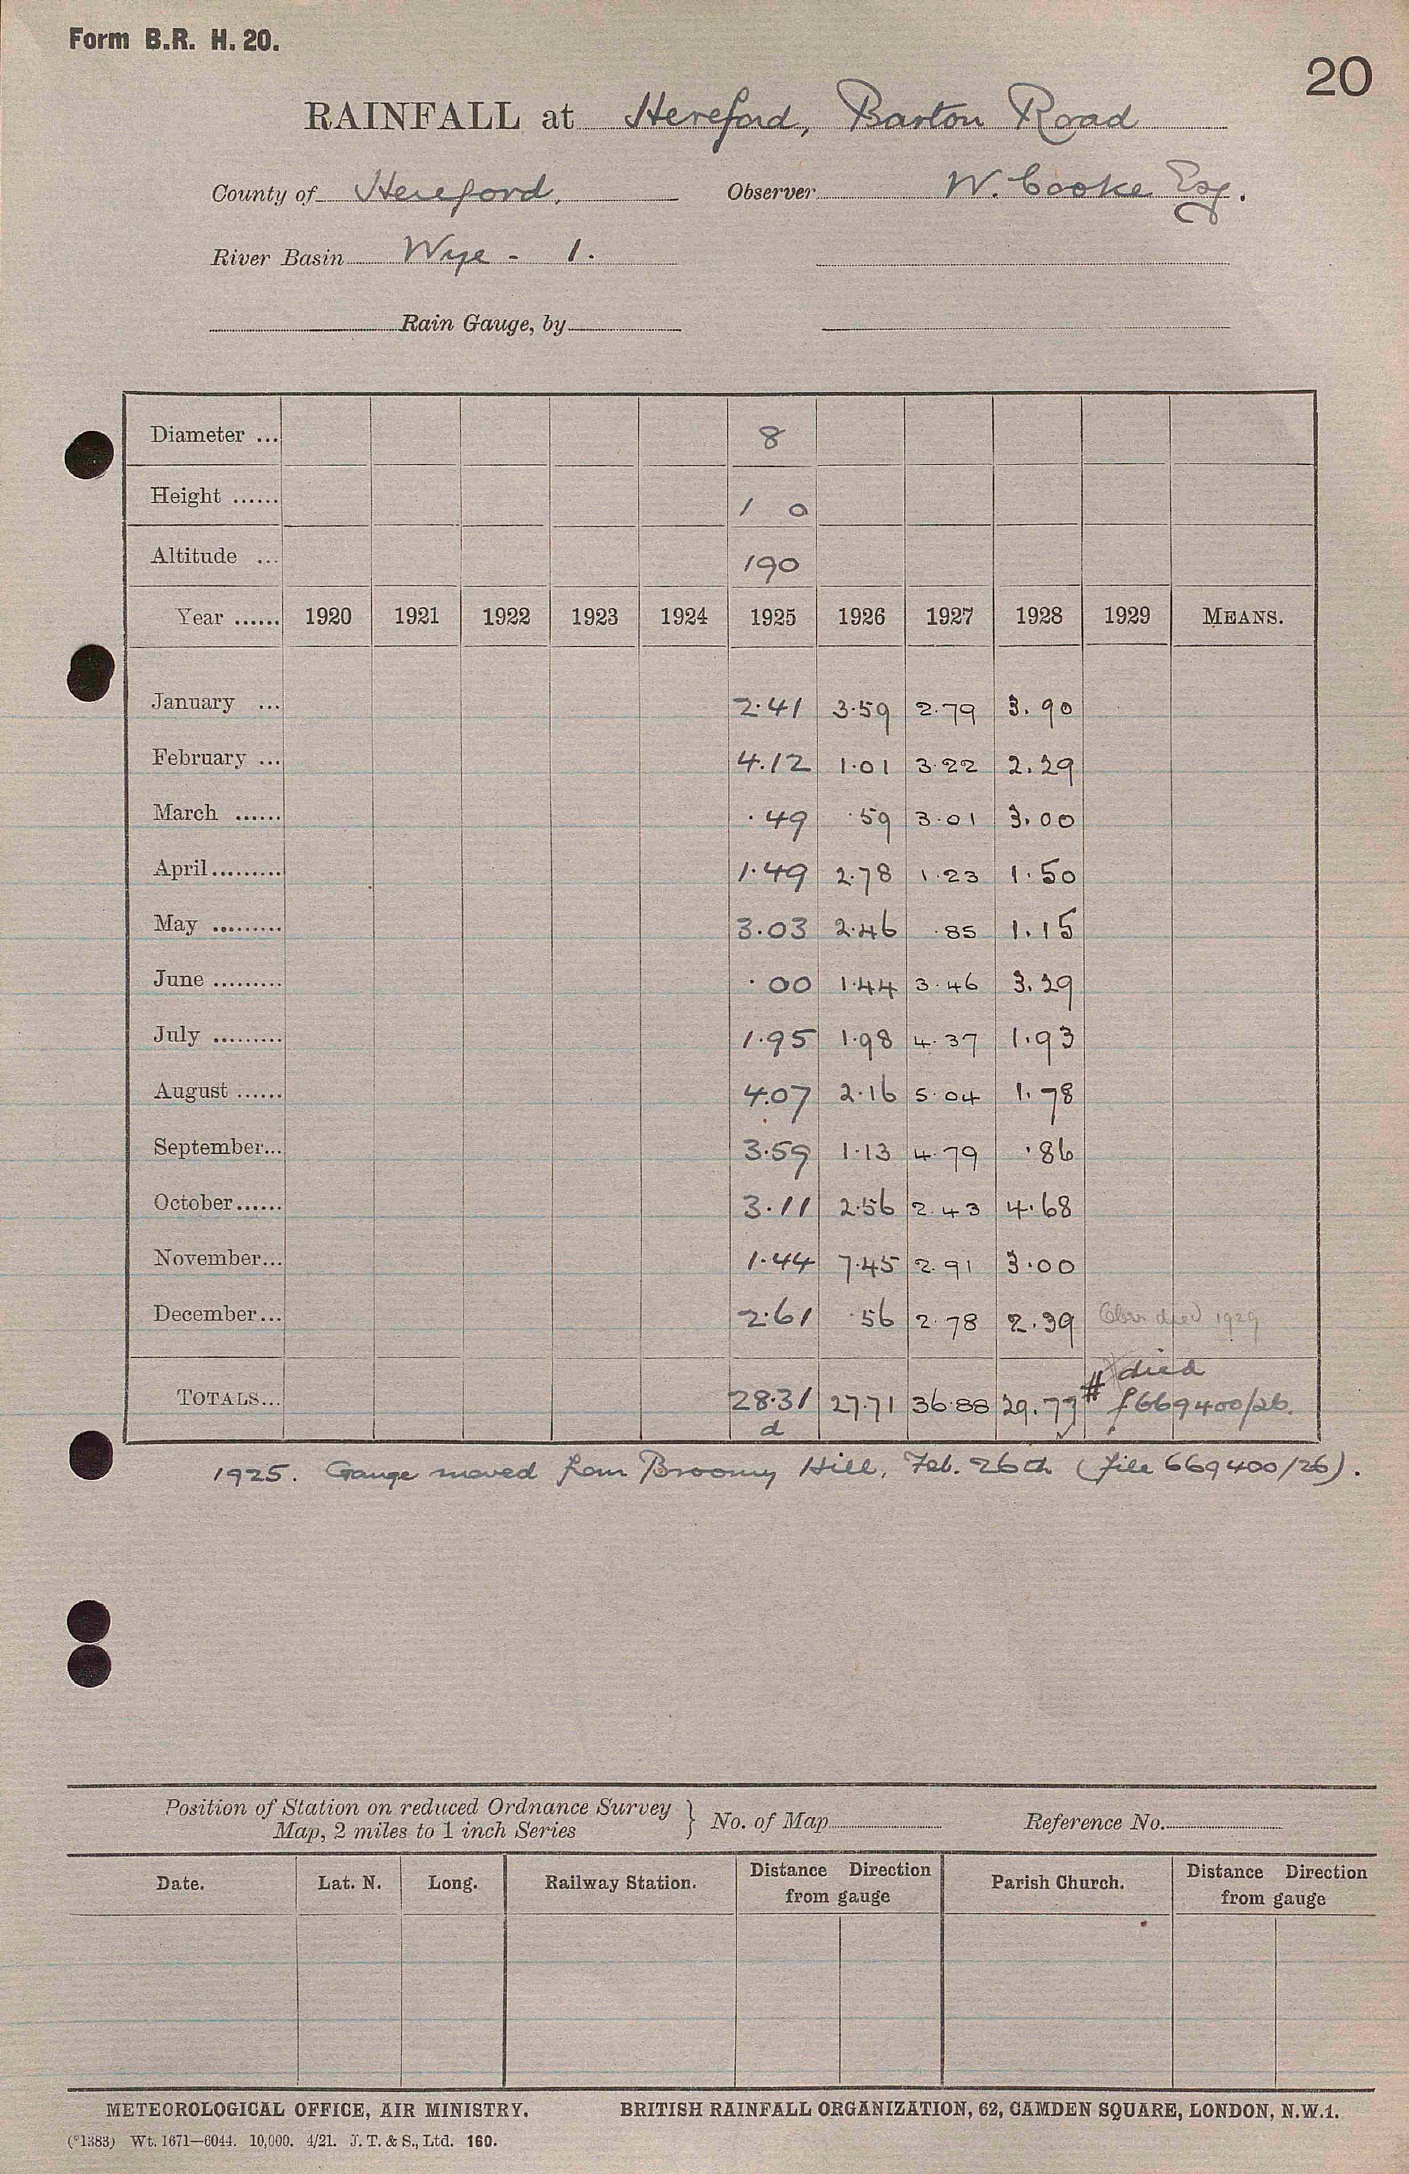 Form B.R. H. 20.
20
RAINFALL at Hereford, Barton Road
County of Hereford. Observer W. Cooke Esq.
River Basin Wye - 1.
Rain Gauge, by
Diameter ... 8
Height ...... 1 0
Altitude ... 190
Year ...... 1920 1921 1922 1923 1924 1925 1926 1927 1928 1929 MEANS.
January ... 2.41 3.59 2.79 3.90
February ... 4.12 1.01 3.22 2.29
March ...... .49 .59 3.01 3.00
April......... 1.49 2.78 1.23 1.50
May ......... 3.03 2.46 .85 1.15
June ......... .00 1.44 3.46 3.29
July ......... 1.95 1.98 4.37 1.93
August ...... 4.07 2.16 5.04 1.78
September... 3.59 1.13 4.79 .86
October...... 3.11 2.56 2.43 4.68
November... 1.44 7.45 2.91 3.00
December... 2.61 .56 2.78 2.39 Obsr died 1929
# died
TOTALS... 28.31 27.71 36.88 29.77 f669400/26.
d
1925. Gauge moved from Broomy Hill, Feb. 26th (file 669400/26).
Position of Station on reduced Ordnance Survey
Map, 2 miles to 1 inch Series } No. of Map Reference No.
Date. Lat. N. Long. Railway Station. Distance Direction from gauge Parish Church. Distance Direction from gauge
METEOROLOGICAL OFFICE, AIR MINISTRY. BRITISH RAINFALL ORGANIZATION, 62, CAMDEN SQUARE, LONDON, N.W.1.
(*1383) Wt. 1671—6044. 10,000. 4/21. J. T. & S., Ltd. 160.